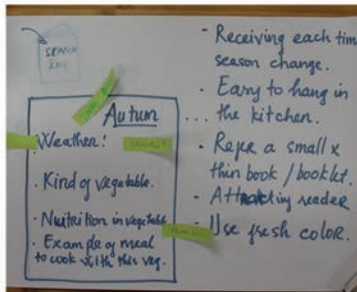 Autumn
Weather:
. Kind of vegetable.
. Nutrition in vegetable
. Example of meal
to cook with this veg.
- Receiving each time
season change.
- Easy to hang in
... the kitchen.
- a small x
thin book / booklet.
- Attracting reader
- Use fresh color.